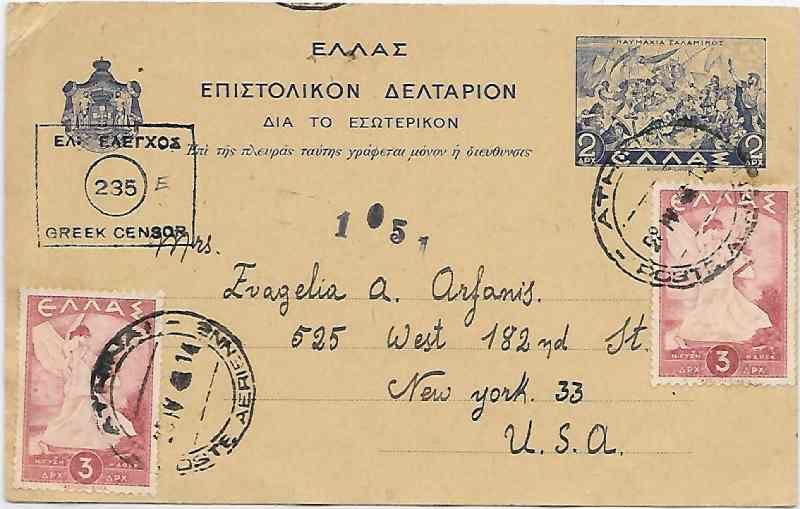 ΕΛΛΑΣ
ΕΠΙΣΤΟΛΙΚΟΝ ΔΕΛΤΑΡΙΟΝ
ΔΙΑ ΤΟ ΕΣΩΤΕΡΙΚΟΝ
Ἐπὶ τῆς πλευρᾶς ταύτης γράφεται μόνον ἡ διεύθυνσις
ΝΑΥΜΑΧΙΑ ΣΑΛΑΜΙΝΟΣ
2 ΕΛΛΑΣ 2
ΔΡΧ ΔΡΧ
ΕΛΕΓΧΟΣ
235 E
GREEK CENSOR
1051
Mrs.
Evagelia A. Arfanis.
525 West 182nd St.
New York. 33
U.S.A.
ΕΛΛΑΣ
3
ΔΡΧ ΔΡΧ
POSTE AERIENNE
ΕΛΛΑΣ
3
ΔΡΧ ΔΡΧ
POSTE